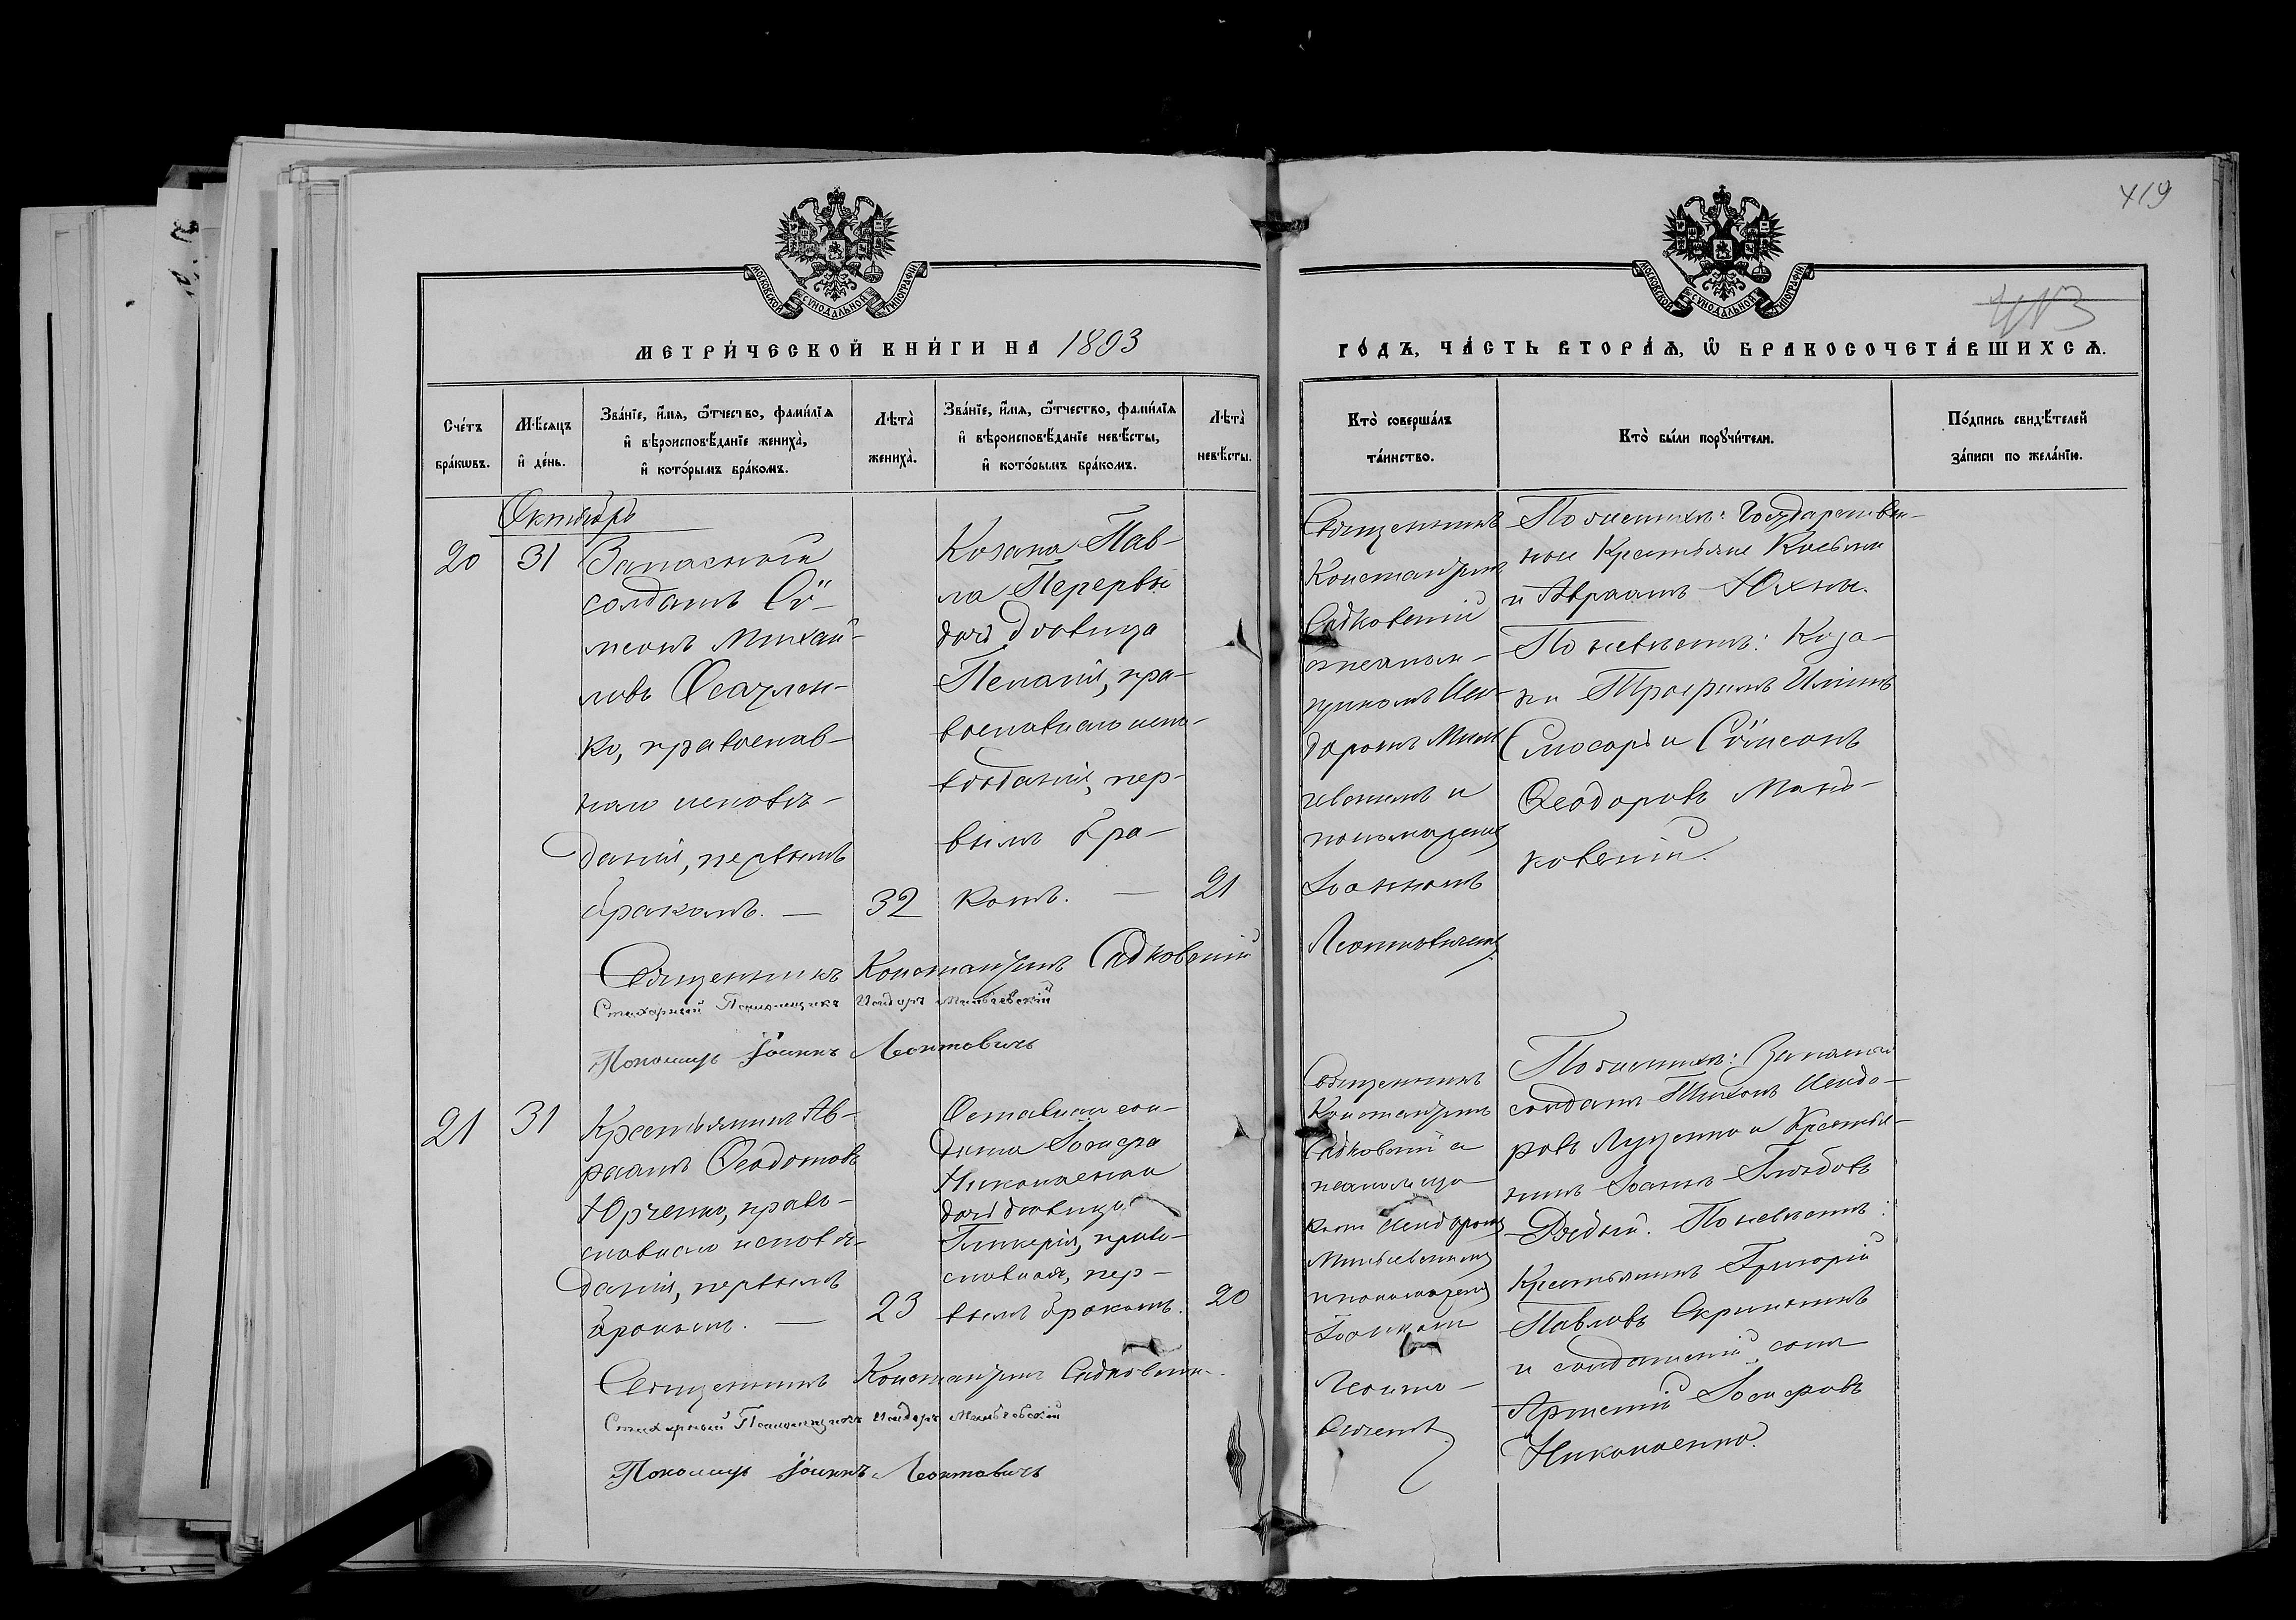 419
МОСКОВСКОЙ СѴНОДАЛЬНОЙ ТИПОГРАФІИ
МОСКОВСКОЙ СѴНОДАЛЬНОЙ ТИПОГРАФІИ
МЕТРИ́ЧЕСКОЙ КНИ́ГИ НА 1893
ГО́ДЪ, ЧА́СТЬ ВТОРА́Ѧ, Ѿ БРАКОСОЧЕТА́ВШИХСѦ.
Сче́тъ бра́кѡвъ.
Мѣ́сяцъ и҆ де́нь.
Зва́нїе, и҆́мѧ, ѻ҆́тчество, фами́лїѧ
и҆ вѣроисповѣ́данїе жениха̀,
и҆ кото́рымъ бра́комъ.
Лѣта̀ жениха̀.
Зва́нїе, и҆́мѧ, ѻ҆́тчество, фами́лїѧ
и҆ вѣроисповѣ́данїе невѣ́сты,
и҆ кото́рымъ бра́комъ.
Лѣта̀ невѣ́сты.
Кто̀ соверша́лъ
та́инство.
Кто̀ бы́ли порꙋчи́тели.
По́дпись свидѣ́телей
за́писи по жела́нїю.
Октябрь
20
31
Запасный
солдатъ Сѵ-
меонъ Михай-
ловъ Ѳсаулен-
ко, православ-
наго исповѣ-
данія, первымъ
бракомъ. —
32
Козака Пав-
ла Перервы
дочь дѣвица
Пелагія, пра-
вославнаго испо-
вѣданія, пер-
вымъ бра-
комъ. —
21
Священникъ
Константинъ
Садковскій
съ псалом-
щикомъ Иси-
доромъ Миль-
чевскимъ и
пономаремъ
Іоанномъ
Леонтовичемъ
По женихѣ: Государствен-
ные Крестьяне Косьма
и Авраамъ Юхны.
По невѣстѣ: Коза-
ки Трофимъ Ильинъ
Слюсарь и Сѵмеонъ
Ѳеодоровъ Мань-
ковскій.
Священникъ Константинъ Садковскій
Стихарный Псаломщикъ Исидоръ Мильчевскій
Пономарь Іоаннъ Леонтовичъ
21
31
Крестьянинъ Ав-
раамъ Ѳеодотовъ
Юрченко, право-
славнаго исповѣ-
данія, первымъ
бракомъ. —
23
Отставнаго сол-
дата Іосифа
Николаенка
дочь дѣвица
Гликерія, право-
славная, пер-
вымъ бракомъ.
20
Священникъ
Константинъ
Садковскій съ
псаломщи-
комъ Исидоромъ
Мильчевскимъ
и пономаремъ
Іоанномъ
Леонто-
вичемъ
По женихѣ: Запасный
солдатъ Тихонъ Исидо-
ровъ Луценко и Крестья-
нинъ Іоаннъ Глѣбовъ
Дѣдый. По невѣстѣ:
Крестьянинъ Григорій
Павловъ Скрипникъ
и солдатскій сынъ
Артемій Іосифовъ
Николаенко.
Священникъ Константинъ Садковскій.
Стихарный Псаломщикъ Исидоръ Мильчевскій
Пономарь Іоаннъ Леонтовичъ